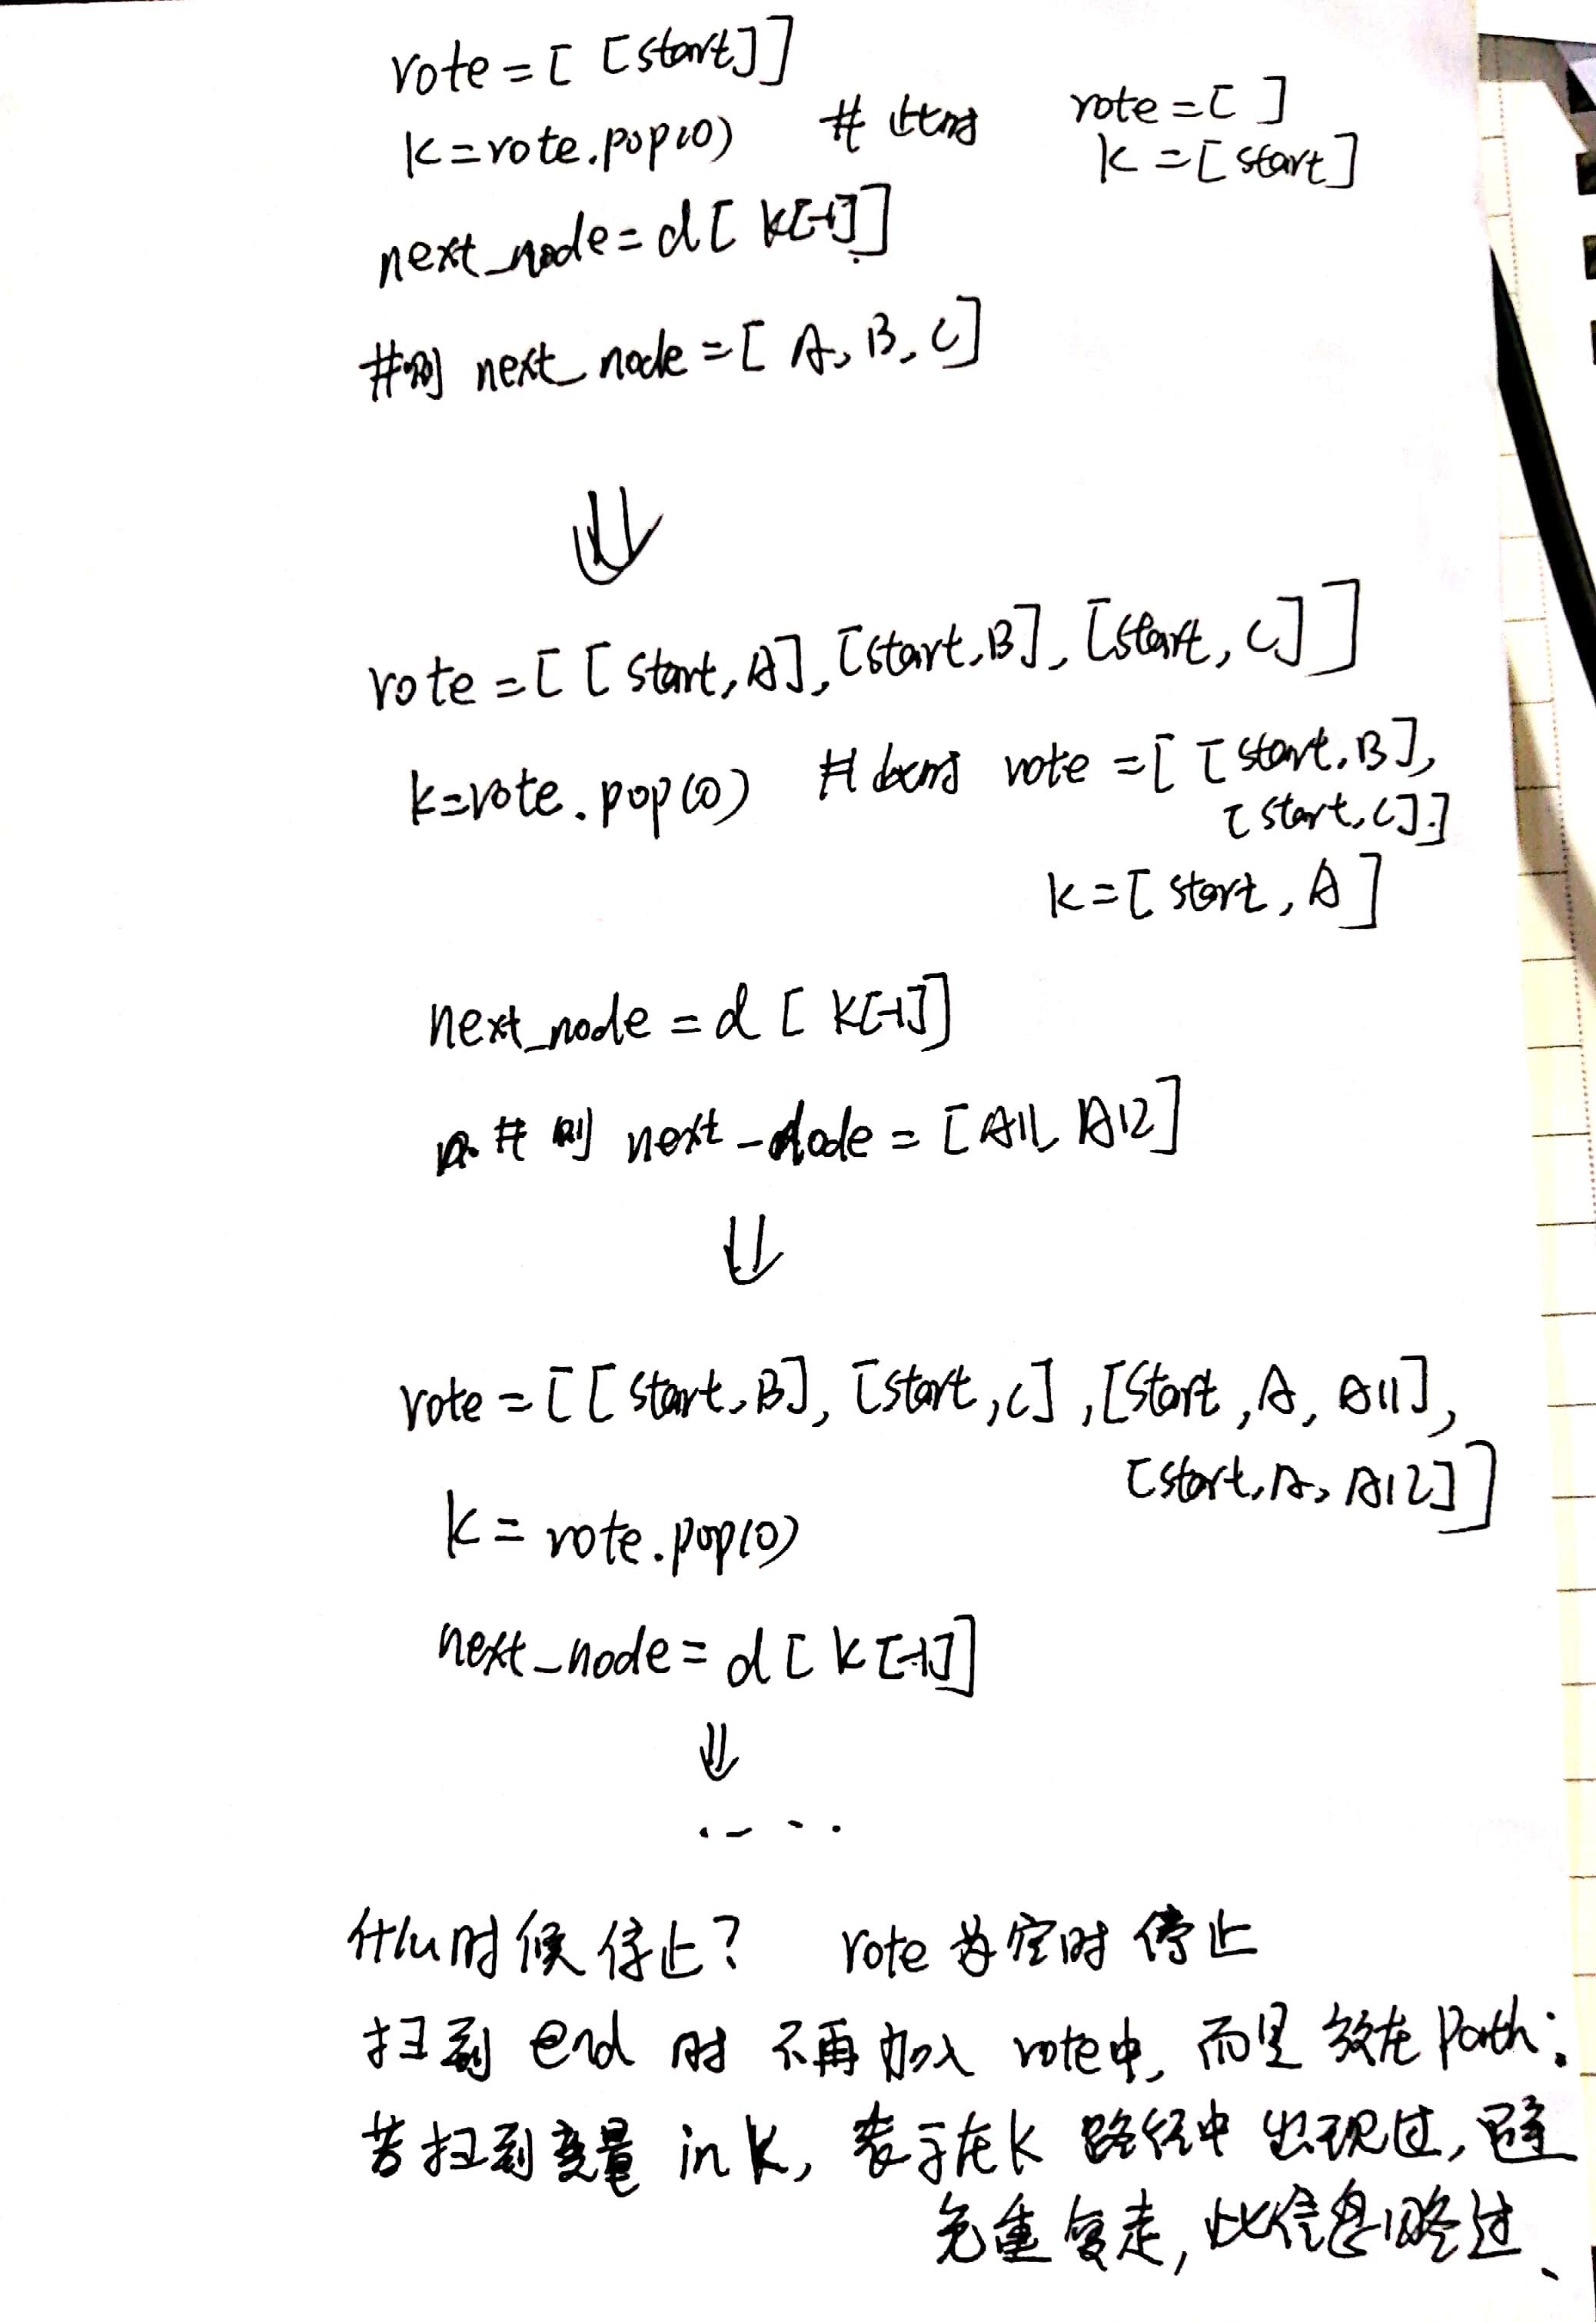 rote = [ [start]]
k = rote.pop(0) # 此时 rote = [ ]
k = [start]
next_node = d[ k[-1]]
#则 next_node = [ A, B, C]
⇓
rote = [ [ start, A], [start, B], [start, C] ]
k = rote.pop(0) #此时 rote = [ [ start, B],
[ start, C] ]
k = [ start, A ]
next_node = d [ k[-1]]
# 则 next_node = [ A11, A12 ]
⇓
rote = [ [ start, B], [start, C], [Start, A, A11],
[start, A, A12] ]
k = rote.pop(0)
next_node = d [ k [-1]]
⇓
....
什么时候停止? rote 为空时停止
扫到 end 时 不再加入 rote中, 而是 放在 Path;
若扫到变量 in k, 表示在k 路径中出现过, 避
免重复走, 此信息略过、